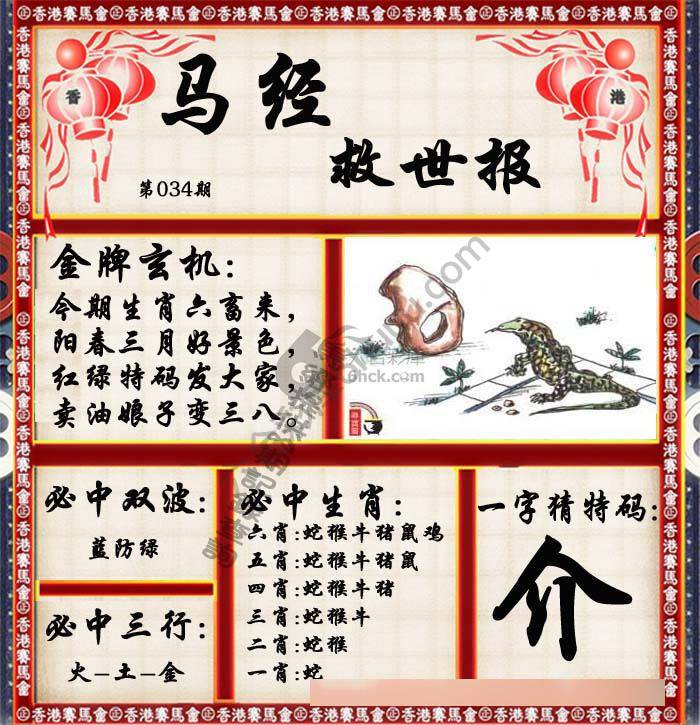 香港賽馬會
香 港
马经
救世报
第034期
金牌玄机：
今期生肖六畜来，
阳春三月好景色，
红绿特码发大家，
卖油娘子变三八。
必中双波：
蓝防绿
必中三行：
火-土-金
必中生肖：
六肖：蛇猴牛猪鼠鸡
五肖：蛇猴牛猪鼠
四肖：蛇猴牛猪
三肖：蛇猴牛
二肖：蛇猴
一肖：蛇
一字猜特码：
介